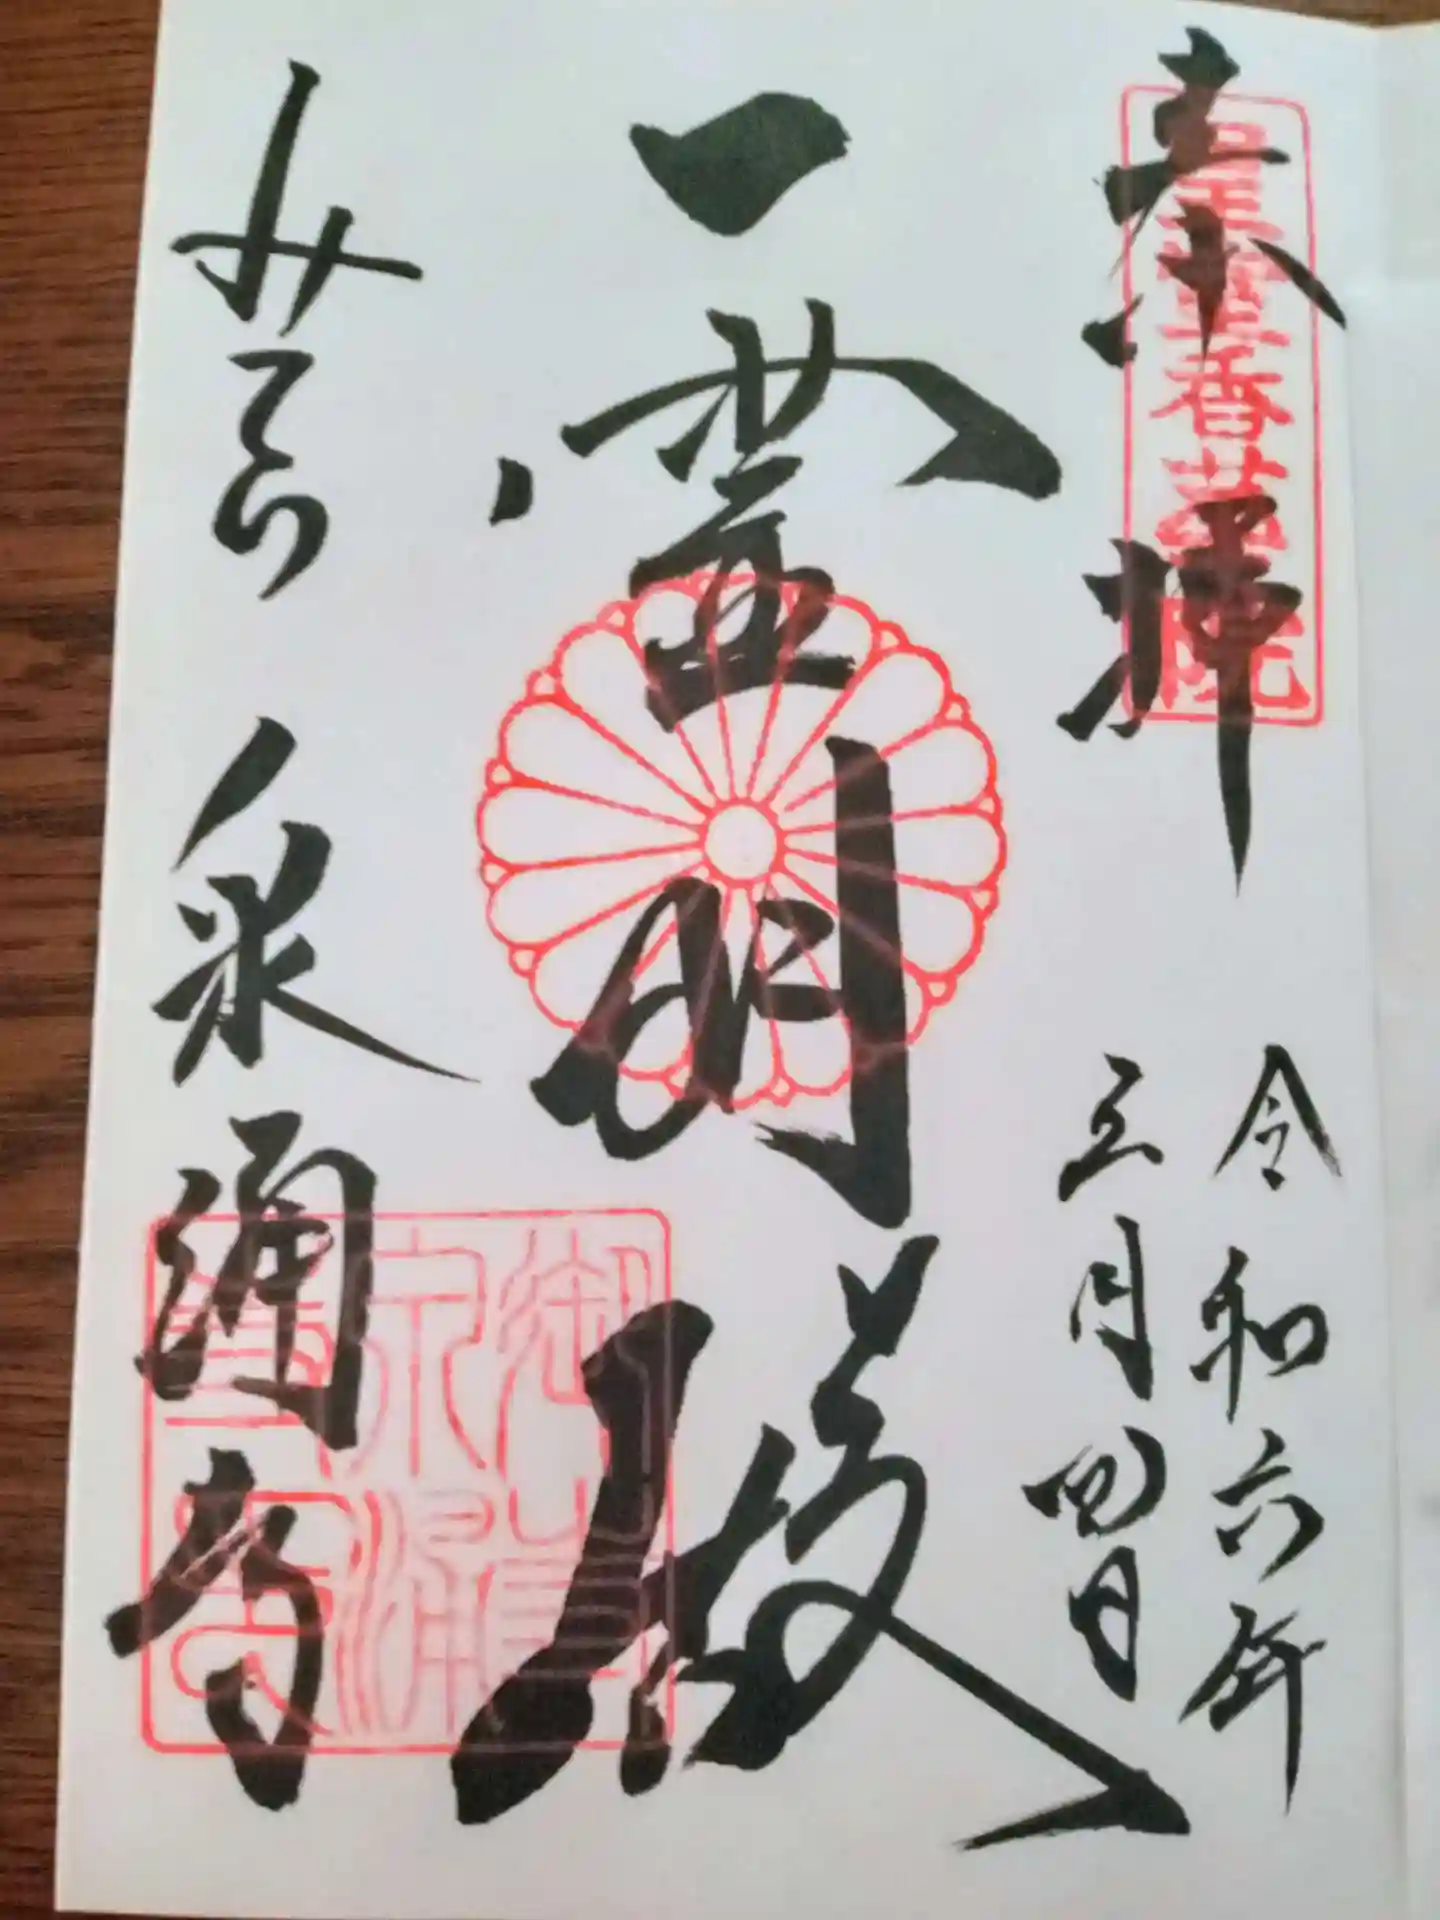 奉拝
皇室香華院
令和六年
三月四日
霊明殿
みてら
泉涌寺
御寺泉涌寺